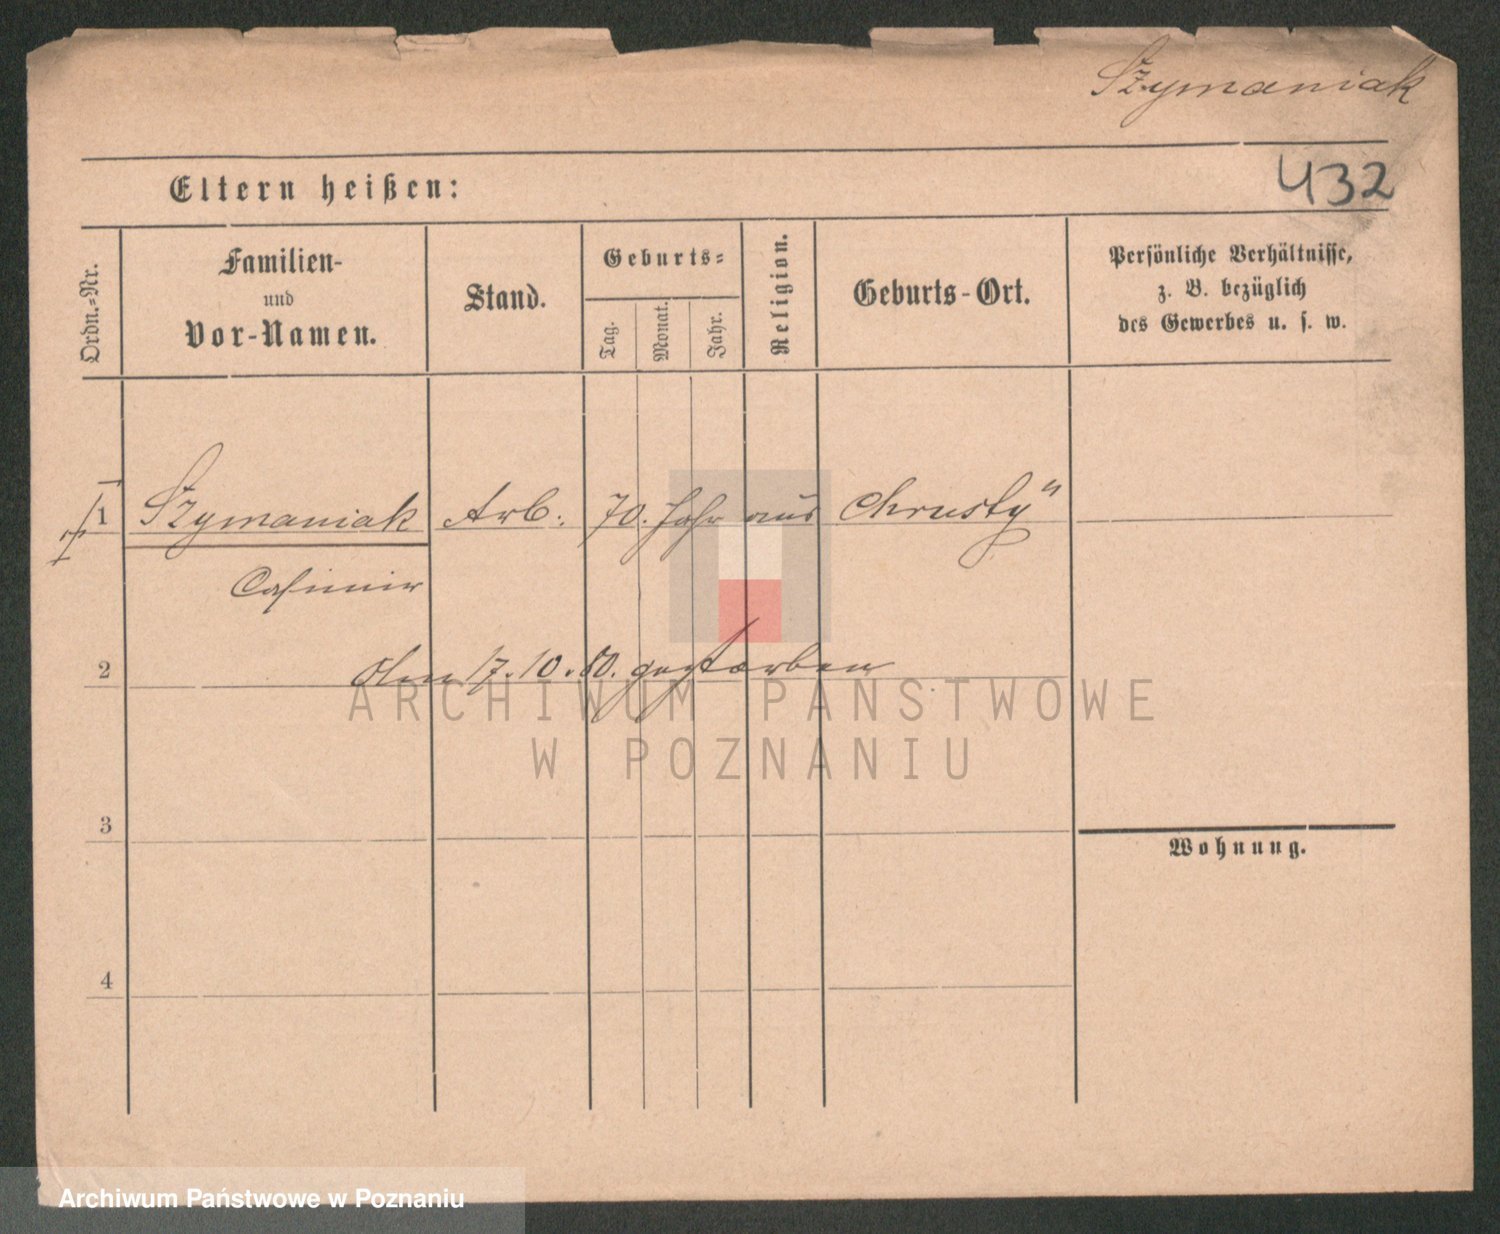 Szymaniak
432
Eltern heißen:
Ordn.=Nr.
Familien-
und
Vor-Namen.
Stand.
Geburts=
Tag.
Monat.
Jahr.
Religion.
Geburts-Ort.
Persönliche Verhältnisse,
z. B. bezüglich
des Gewerbes u. s. w.
1 Szymaniak Arb. 70. Jahr aus Chrusty"
Casimir
2 Am 17.10.80. gestorben
ARCHIWUM PAŃSTWOWE
W POZNANIU
3
Wohnung.
4
Archiwum Państwowe w Poznaniu